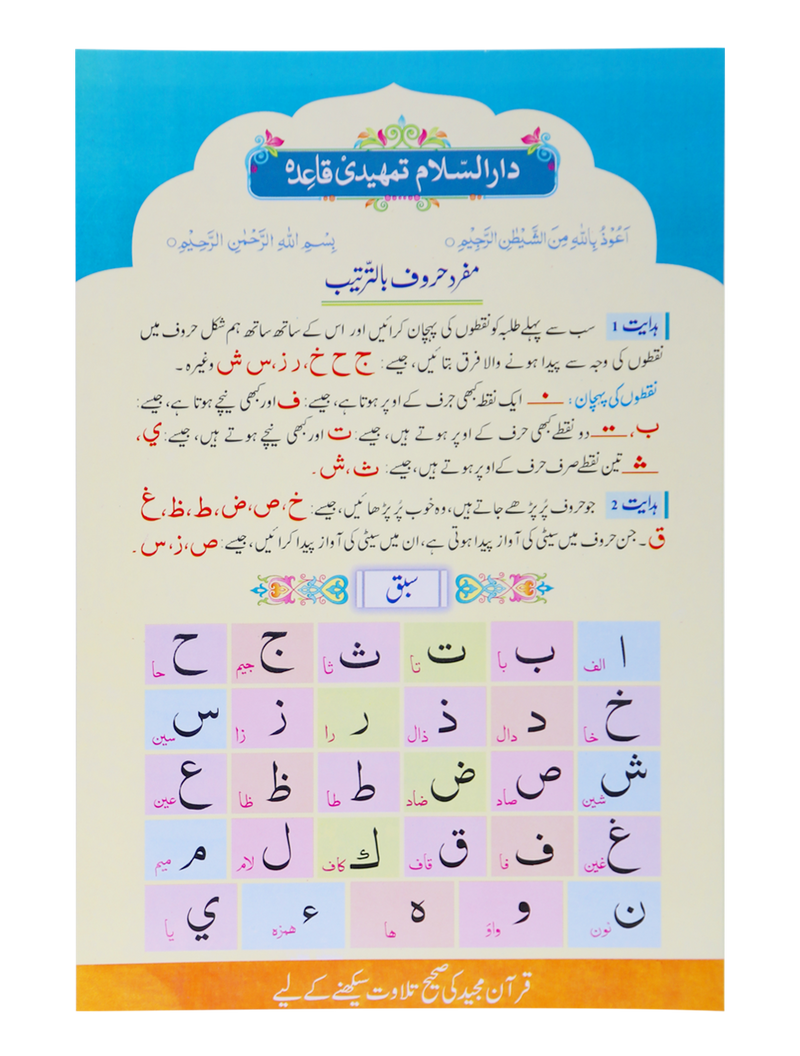 دارالسّلام تمهیدی قاعدہ
اَعُوْذُ بِاللهِ مِنَ الشَّيْطٰنِ الرَّجِيْمِ ○ بِسْمِ اللهِ الرَّحْمٰنِ الرَّحِيْمِ ○
مفرد حروف بالترتیب
ہدایت 1 سب سے پہلے طلبہ کو نقطوں کی پہچان کرائیں اور اس کے ساتھ ساتھ ہم شکل حروف میں
نقطوں کی وجہ سے پیدا ہونے والا فرق بتائیں، جیسے: ج ح خ، ر ز، س ش وغیرہ۔
نقطوں کی پہچان: ایک نقطہ کبھی حرف کے اوپر ہوتا ہے، جیسے: ف اور کبھی نیچے ہوتا ہے، جیسے:
ب، دو نقطے کبھی حرف کے اوپر ہوتے ہیں، جیسے: ت اور کبھی نیچے ہوتے ہیں، جیسے: ي،
تین نقطے صرف حرف کے اوپر ہوتے ہیں، جیسے: ث، ش۔
ہدایت 2 جو حروف پُر پڑھے جاتے ہیں، وہ خوب پُر پڑھائیں، جیسے: خ، ص، ض، ط، ظ، غ
ق۔ جن حروف میں سیٹی کی آواز پیدا ہوتی ہے، ان میں سیٹی کی آواز پیدا کرائیں، جیسے: ص، ز، س۔
سبق
ا الف ب با ت تا ث ثا ج جیم ح حا
خ خا د دال ذ ذال ر را ز زا س سین
ش شین ص صاد ض ضاد ط طا ظ ظا ع عین
غ غین ف فا ق قاف ك کاف ل لام م میم
ن نون و واؤ ہ ھا ء ھمزہ ي یا
قرآن مجید کی صحیح تلاوت سیکھنے کے لیے